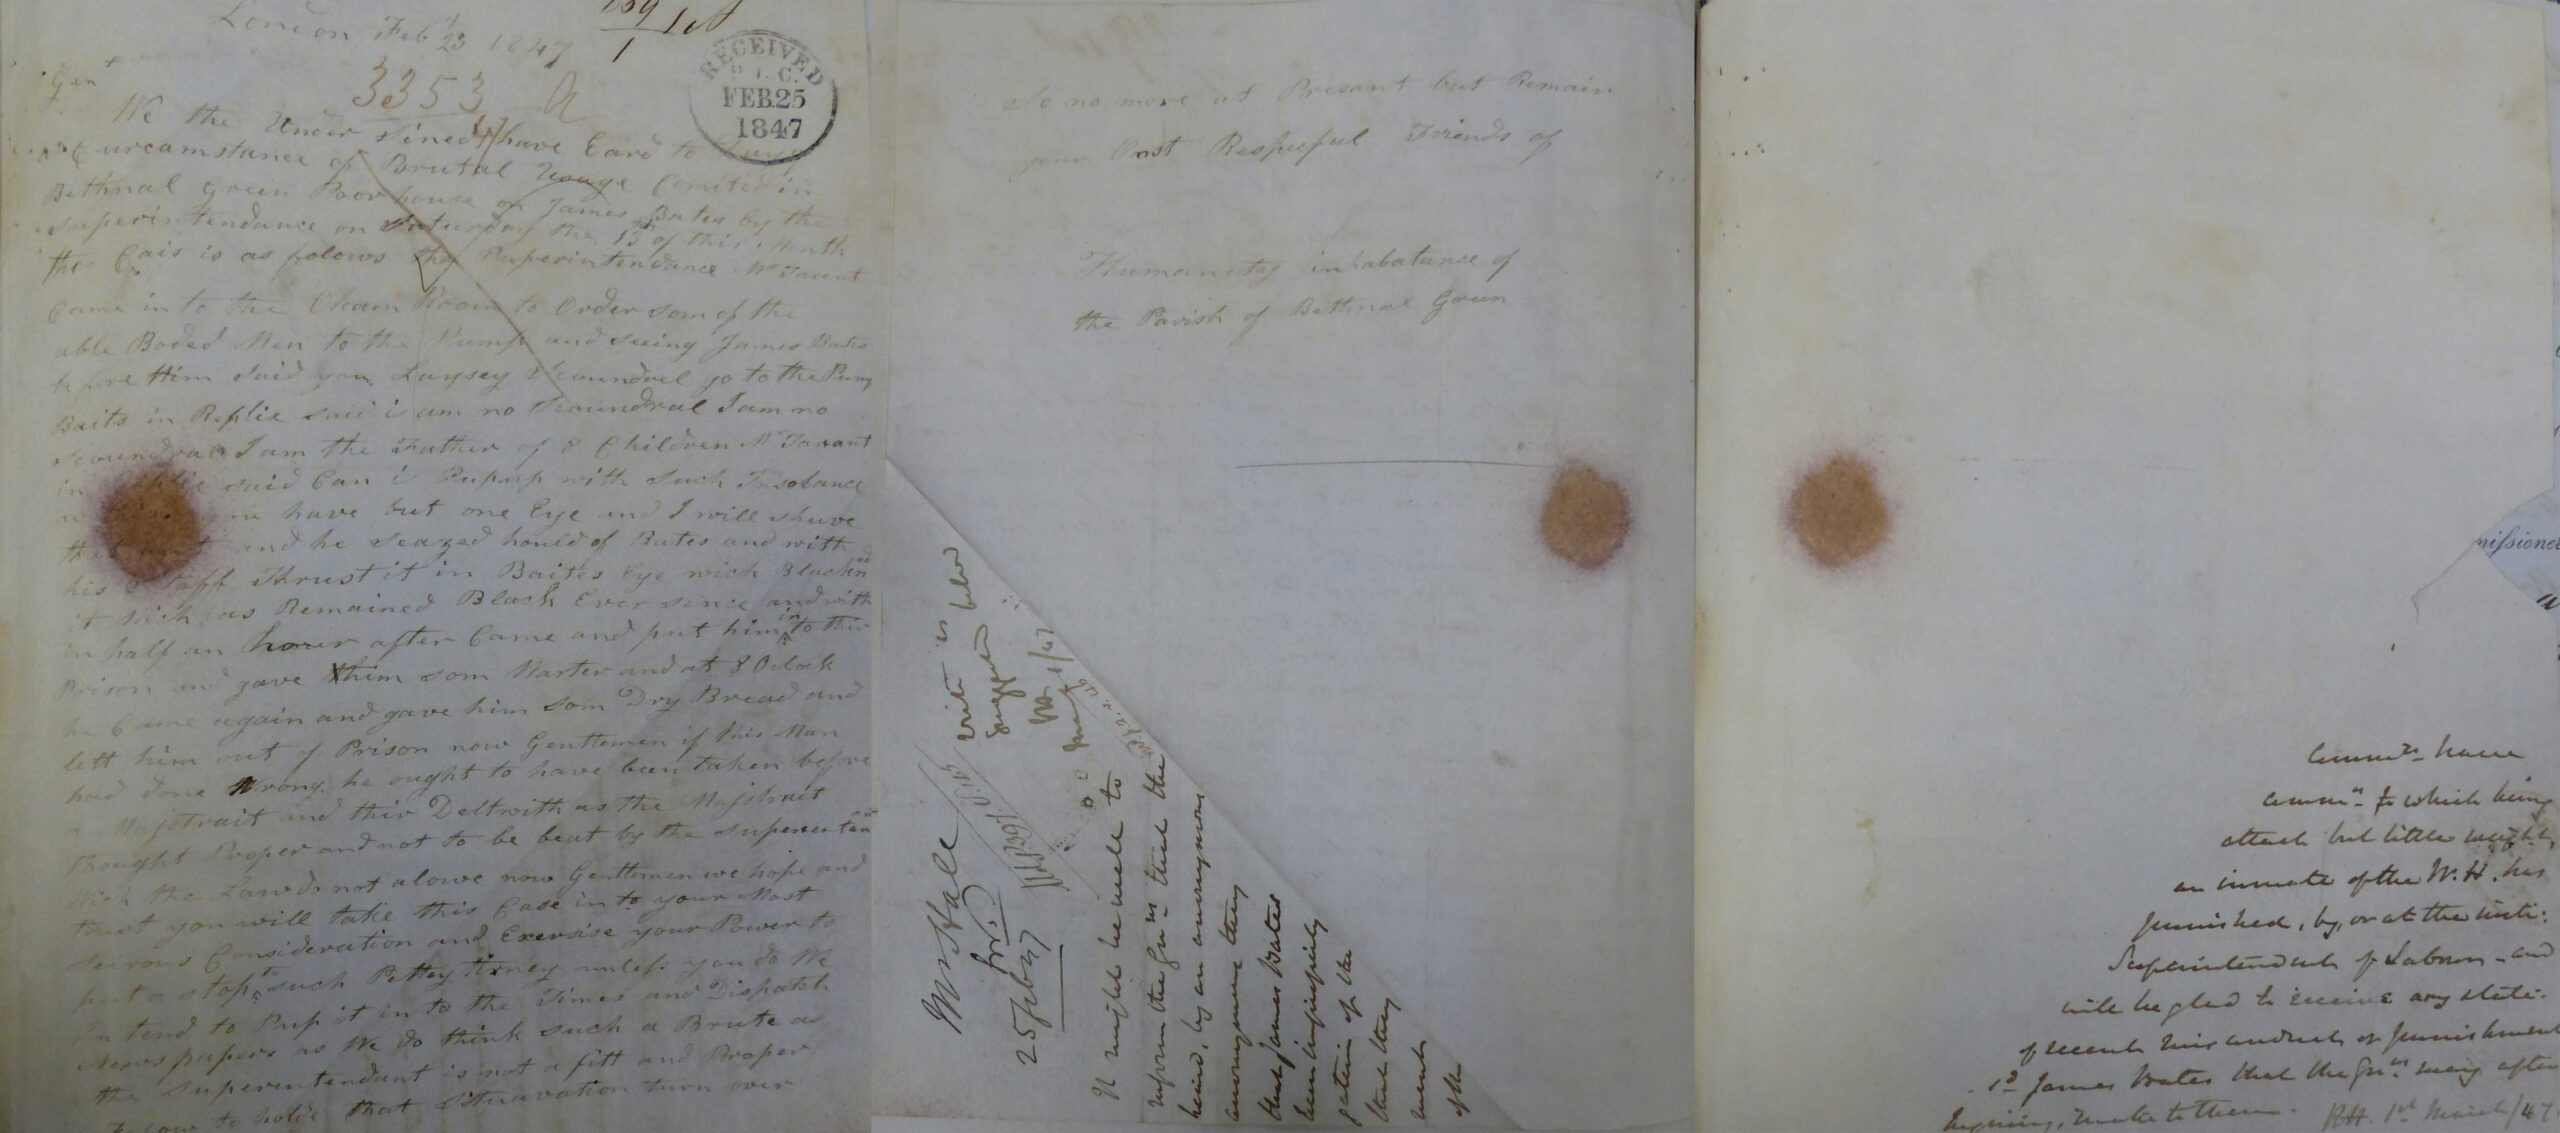 London Feb 23 1847
RECEIVED
P.L.C.
FEB.25
1847
Gent
3353 A
47
We the Under sined have Eard to Day
a Curcamstance of Brutal Usuge Comited in
Bethnal Green Poor house on James Bates by the
Superintendance on Saturday the 13th of this Month
the Cais is as folows the Superintendance Mr Tarent
Came in to the Okam Room to Order som of the
able Boded Men to the Pump and seeing James Bates
before Him said you Laysey Scoundrel go to the Pump
Baits in Replie said i am no Scoundral I am no
Scoundral I am the Father of 8 Children Mr Tarant
in Replie said Can i Puput with such Insolance
you have but one Eye and I will shuve
that out and he Seazed hould of Bates and with
his Staff Thrust it in Baites Eye wich Blackned
it Wich as Remained Black Ever sence and with
in half an hower after Came and put him in to thir
Prison and gave him som Warter and at 8 Oclock
he Came again and gave him som Dry Bread and
lett him out of Prison now Gentlemen if this Man
had done Wrong he ought to have been taken before
a Majstrait and thir Deltwith as the Majstrait
thought Proper and not to be beat by the superentendan
Wich the Law do not alowe now Gentlemen we hope and
trust you will take this Case in to your Most
Seirous Consideration and Exersise your Power to
put a stop to such Pettey tirney unless you do We
In tend to Pup it in to the Times and Dispatch
Newspapers as We do think such a Brute as
the Superentendant is not a fitt and Proper
to holde that Situavation turn over
So no more at Presant but Remain
your Onst Respueful Friends of
Humanity inhabatance of
the Parish of Bethnal Green
Mr Hale
25 Feb 47
write as below
suggested
Mar 1/47
It might be well to
inform the Gns that the
by an anonymous
anonymous they
that James Bates
been improperly
gation of the
that they
ment
of the
Commrs have
commn to which being
attach but little weight,
an inmate of the W.H. has
punished, by, or at the insti-
Superintendent of Labour - and
will be glad to receive any state-
of recent misconduct or punishment
sd James Bates that the Gns may after
inquiring, make to them. RH. 1st March/47
missione